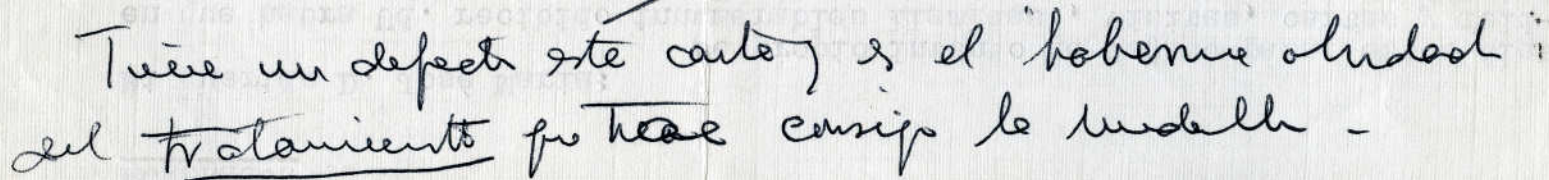 Tiene un defecto esta carta y es el haberme olvidado
del tratamiento que trae consigo la medalla -